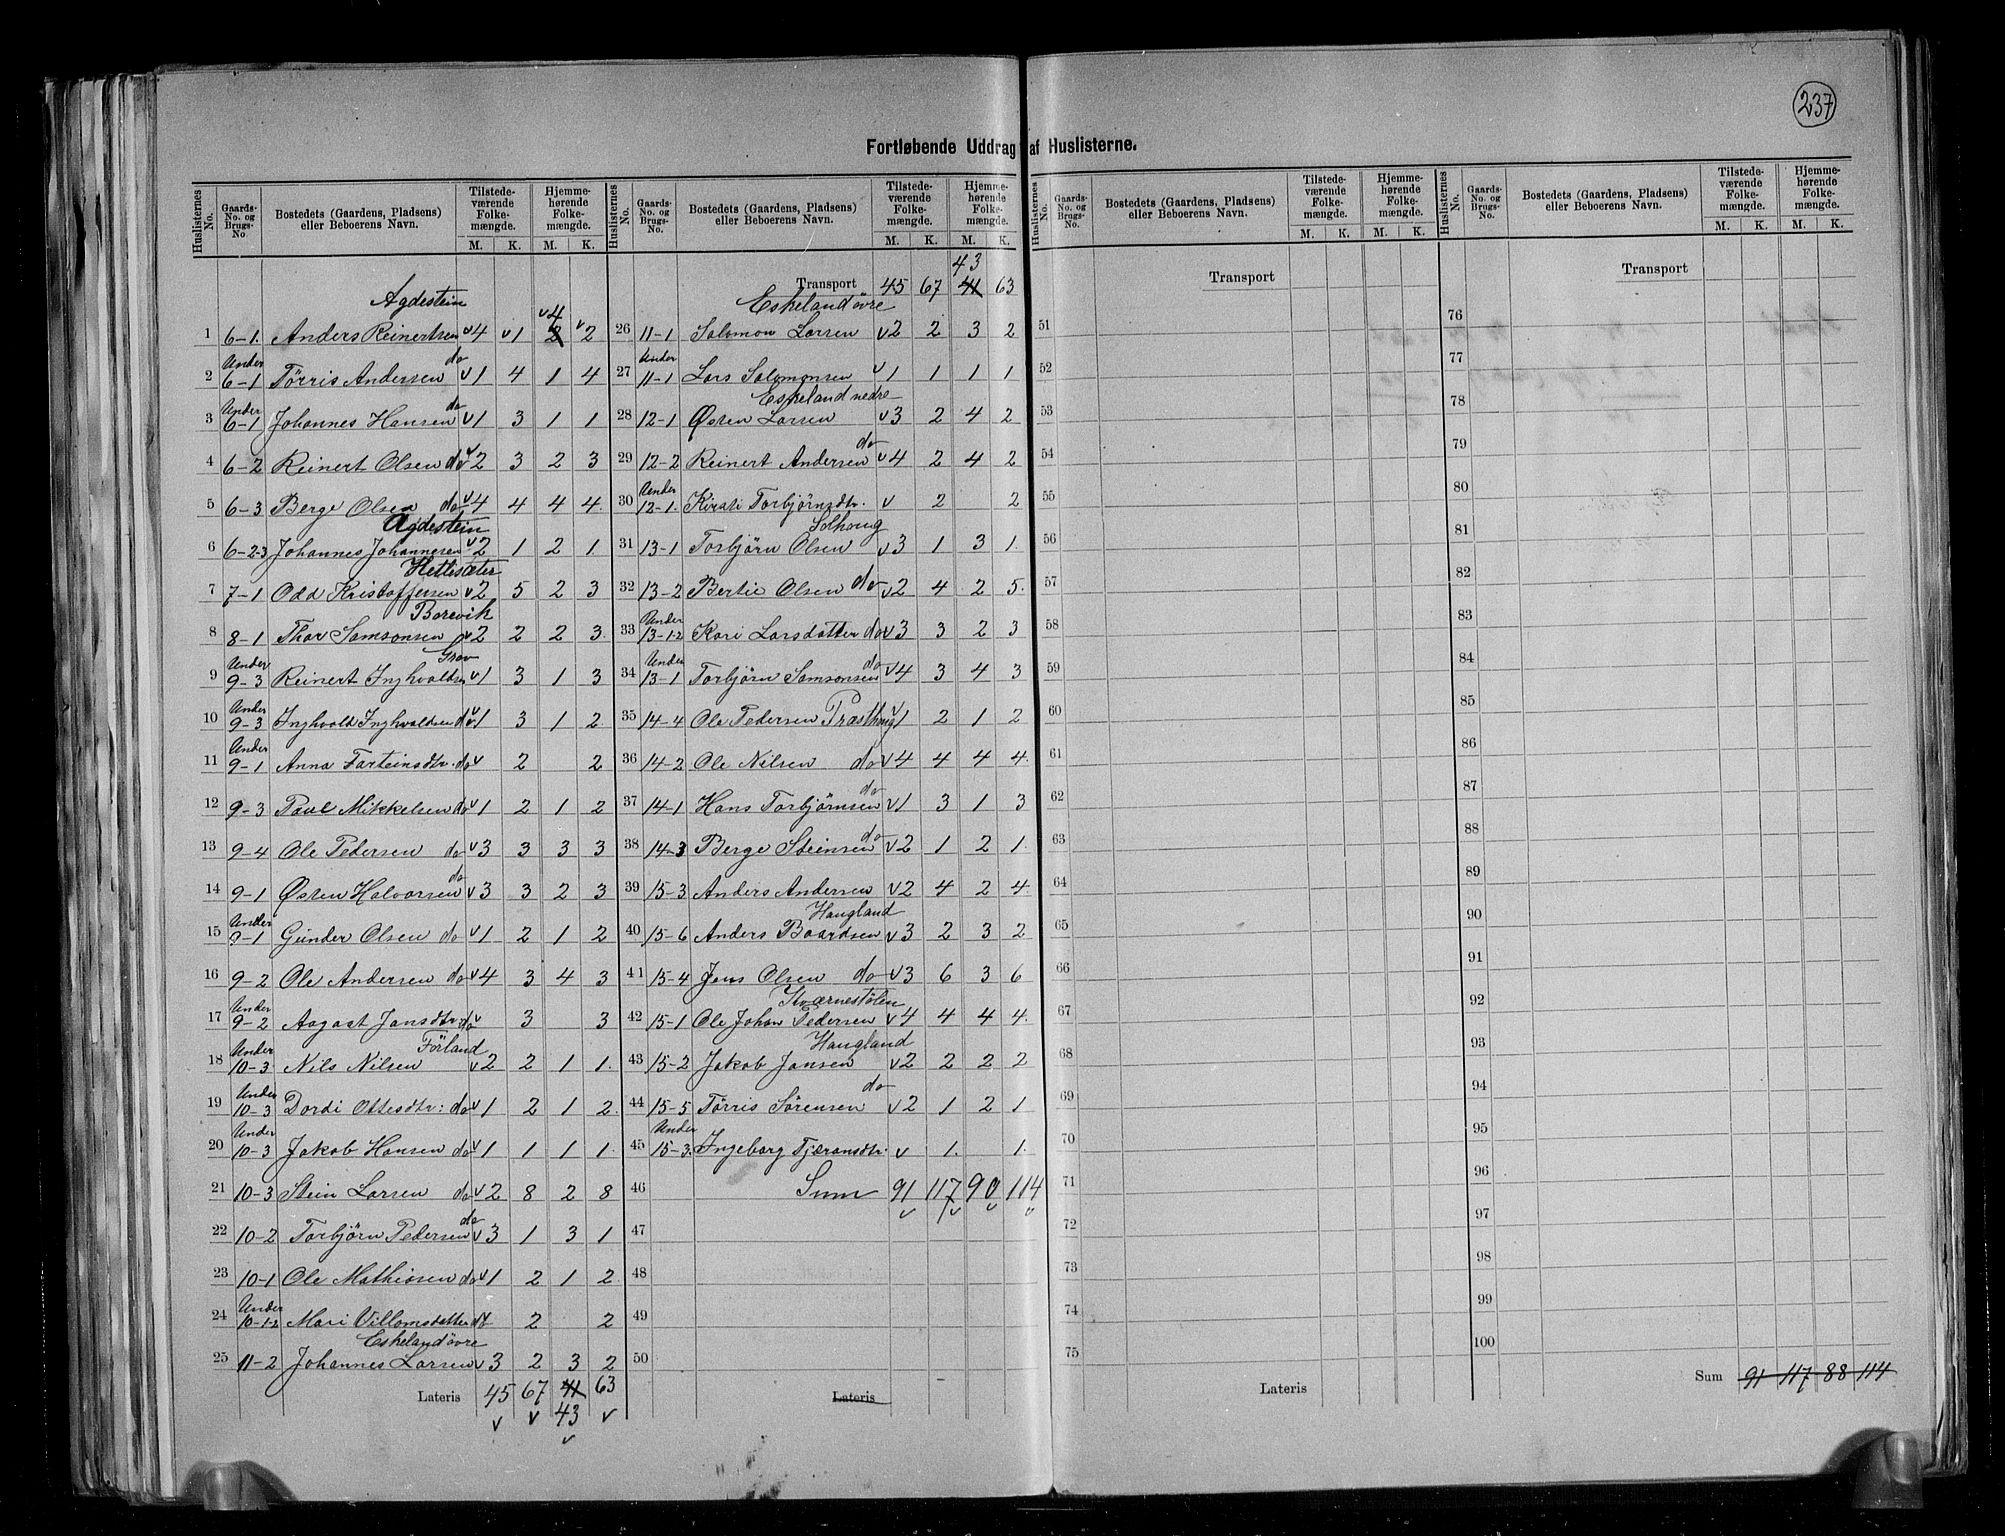 237
Fortløbende Uddrag af Huslisterne.
Huslisternes No. | Gaards-No. og Brugs-No. | Bostedets (Gaardens, Pladsens) eller Beboerens Navn. | Tilstedeværende Folkemængde. M. K. | Hjemmehørende Folkemængde. M. K.
Agdestein
1 6-1. Anders Reinertsen v4 v1 v4 2 v2
2 Under 6-1 Tørris Andersen do v1 4 1 4
3 Under 6-1 Johannes Hansen do v1 3 1 1
4 6-2 Reinert Olsen do v2 3 2 3
5 6-3 Berge Olsen do v4 4 4 4.
Agdestein
6 6-2-3 Johannes Johannesen v2 1 2 1.
Hettesæter
7 7-1 Odd Kristoffersen v2 5 2 3
Borevik
8 8-1 Thor Samsonsen v2 2 2 3.
Grov
9 Under 9-3 Reinert Inghvaldsen v1 3 1 3
10 Under 9-3 Inghvald Inghvaldsen do v1 3 1 2.
11 Under 9-1 Anna Farteinsdtr. do v 2 2
12 9-3 Paul Mikkelsen do v1 2 1 2
13 9-4 Ole Pedersen do v3 3 3 3
14 9-1 Østen Halvorsen do v3 3 2 3
15 Under 9-1 Gunder Olsen do v1 2 1 2
16 9-2 Ole Andersen do v4 3 4 3
17 Under 9-2 Aagaat Jansdtr: do v 3 3
Førland
18 Under 10-3 Nils Nilsen v2 2 1 1.
19 Under 10-3 Dordi Ottesdtr: do v1 2 1 2.
20 Under 10-3 Jakob Hansen do v1 1 1 1.
21 10-3 Stein Larsen do v2 8 2 8
22 10-2 Torbjørn Pedersen do v3 1 3 1
23 10-1 Ole Mathiasen do v1 2 1 2.
24 Under 10-1-2 Mari Villomsdatter do v 2 2
Eskeland øvre
25 11-2 Johannes Larsen v3 2 3 2
Lateris 45 67 41 63
v v 43 v
v
Huslisternes No. | Gaards-No. og Brugs-No. | Bostedets (Gaardens, Pladsens) eller Beboerens Navn. | Tilstedeværende Folkemængde. M. K. | Hjemmehørende Folkemængde. M. K.
43
Transport 45 67 41 63
Eskeland øvre
26 11-1 Salomon Larsen v2 2 3 2
27 Under 11-1 Lars Salomonsen v1 1 1 1
Eskeland nedre
28 12-1 Østen Larsen v3 2 4 2
29 12-2 Reinert Andersen do v4 2 4 2
30 Under 12-1. Kirsti Torbjørnsdtr. v 2 2
Solhoug
31 13-1 Torbjørn Olsen v3 1 3 1.
32 13-2 Bertie Olsen do v2 4 2 5.
33 Under 13-1-2 Kari Larsdatter do v3 3 2 3
34 Under 13-1 Torbjørn Samsonsen do v4 3 4 3
35 14-4 Ole Pedersen Præsthoug v1 2 1 2
36 14-2 Ole Nilsen do v4 4 4 4.
37 14-1 Hans Torbjørnsen do v1 3 1 3
38 14-3 Berge Steinsen do v2 1 2 1.
39 15-3 Anders Andersen v2 4 2 4.
Haugland
40 15-6 Anders Baardsen v3 2 3 2
41 15-4 Jens Olsen do v3 6 3 6
Kværnestølen
42 15-1 Ole Johan Pedersen v4 4 4 4.
Haugland
43 15-2 Jakob Jansen v2 2 2 2
44 15-5 Tørris Sørensen do v2 1 2 1
45 Under 15-3. Ingeborg Tjæransdtr. v 1. 1.
46 Sum 91 117 90 114
v v v v
47
48
49
50
Lateris
Huslisternes No. | Gaards-No. og Brugs-No. | Bostedets (Gaardens, Pladsens) eller Beboerens Navn. | Tilstedeværende Folkemængde. M. K. | Hjemmehørende Folkemængde. M. K.
Transport
51
52
53
54
55
56
57
58
59
60
61
62
63
64
65
66
67
68
69
70
71
72
73
74
75
Lateris
Huslisternes No. | Gaards-No. og Brugs-No. | Bostedets (Gaardens, Pladsens) eller Beboerens Navn. | Tilstedeværende Folkemængde. M. K. | Hjemmehørende Folkemængde. M. K.
Transport
76
77
78
79
80
81
82
83
84
85
86
87
88
89
90
91
92
93
94
95
96
97
98
99
100
Sum 91 117 88 114